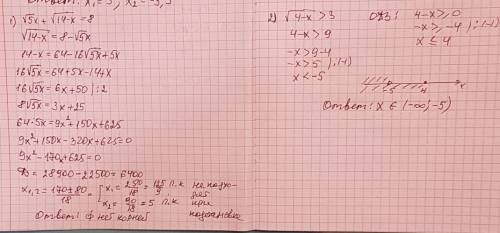 Ответ: x₁ = 5, x₂ = -3,5
1) √5x + √14-x = 8
√14-x = 8-√5x
14-x = 64-16√5x+5x
16√5x = 64+5x-14+x
16√5x = 6x+50 |:2
8√5x = 3x+25
64·5x = 9x²+150x+625
9x²+150x-320x+625=0
9x²-170x+625=0
D = 28900-22500=6400
x₁,₂ = 170±80/18 = [ x₁ = 250/18 = 125/9 п.к не подхо-
дят
x₂ = 90/18 = 5 п.к при
Ответ: ф нет корней подстановке
2) √4-x > 3
4-x > 9
-x > 9-4
-x > 5 |:(-1)
x < -5
ОДЗ: 4-x ≥ 0
-x ≥ -4 |:(-1)
x ≤ 4
-5 4 x
Ответ: x ∈ (-∞; -5)